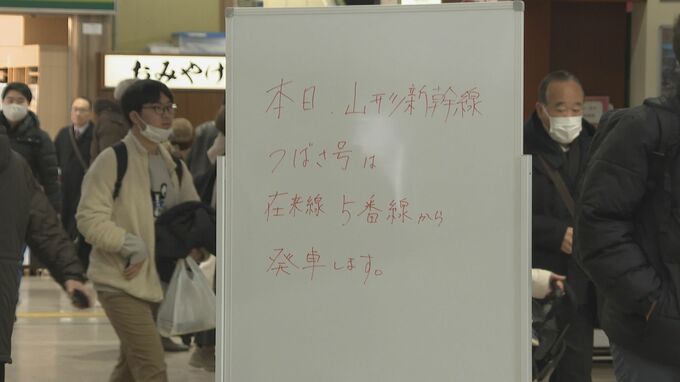 おみやげ
本日、山形新幹線
つばさ号は
在来線 5番線から
発車します。